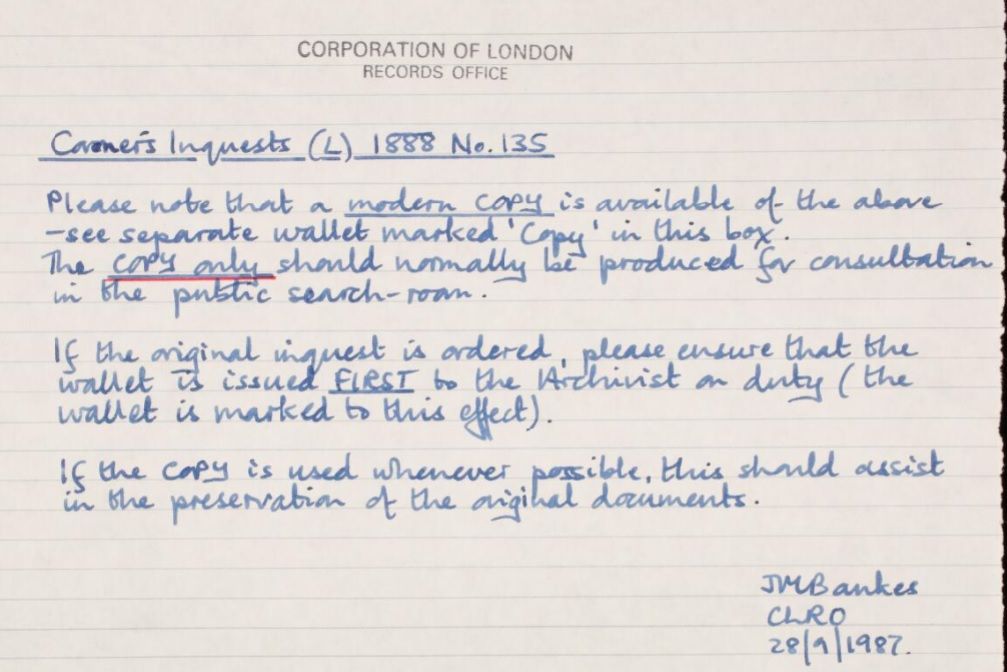 CORPORATION OF LONDON
RECORDS OFFICE
Coroner's Inquests (L) 1888 No. 135
Please note that a modern COPY is available of the above
-see separate wallet marked 'Copy' in this box.
The COPY only should normally be produced for consultation
in the public search-room.
If the original inquest is ordered, please ensure that the
wallet is issued FIRST to the Archivist on duty (the
wallet is marked to this effect).
If the COPY is used whenever possible, this should assist
in the preservation of the original documents.
JMBankes
CLRO
28/9/1987.